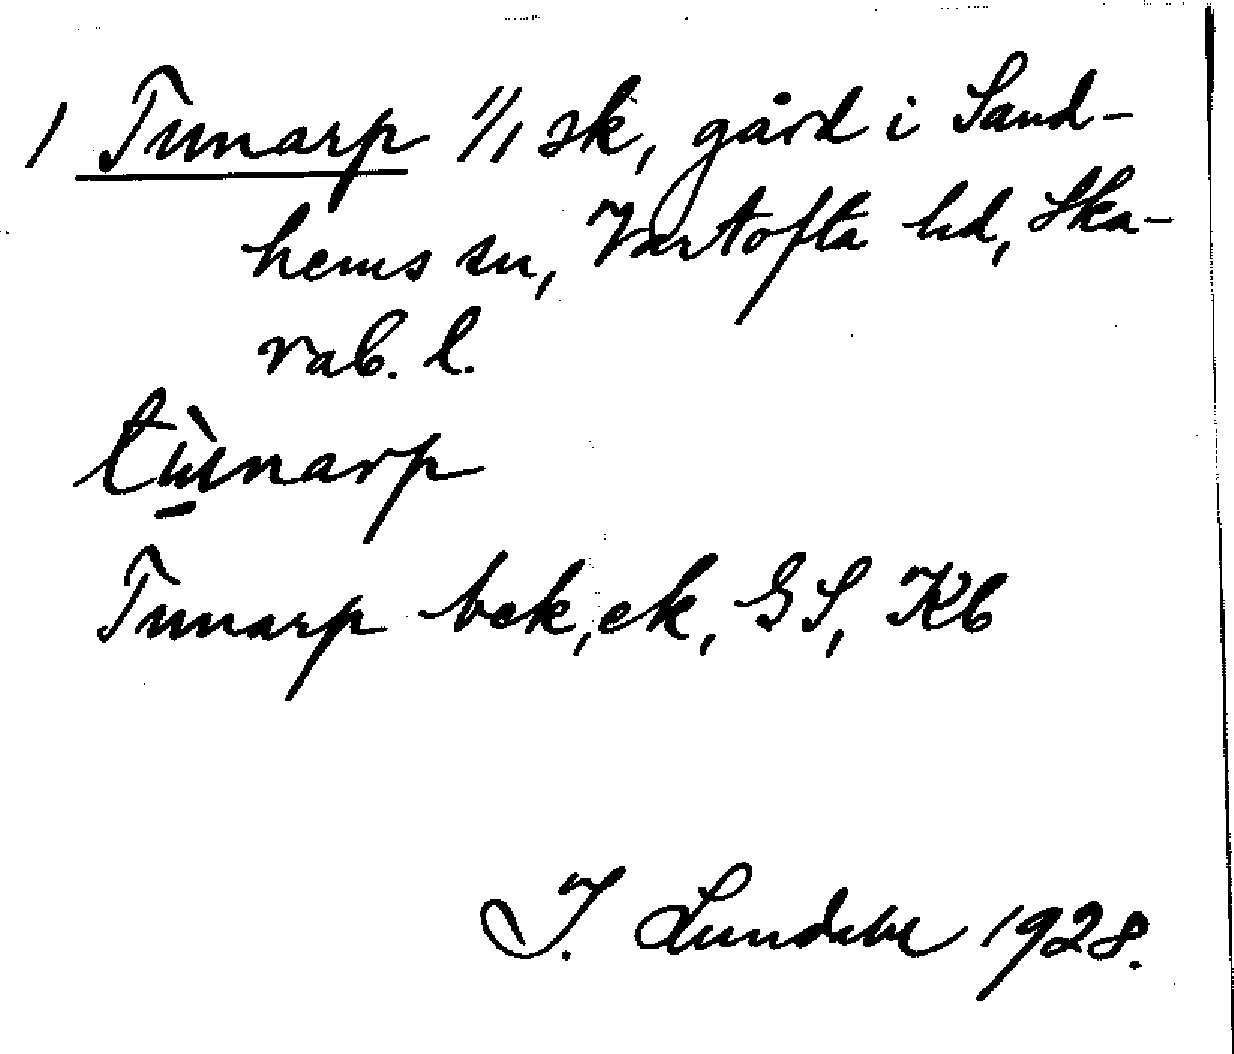 1 Tunarp 1/1 sk, gård i Sand-
hems sn, Vartofta hd, Ska-
rab. l.
tùnarp
Tunarp bek, ek, GS, Kb
J. Lundahl 1928.